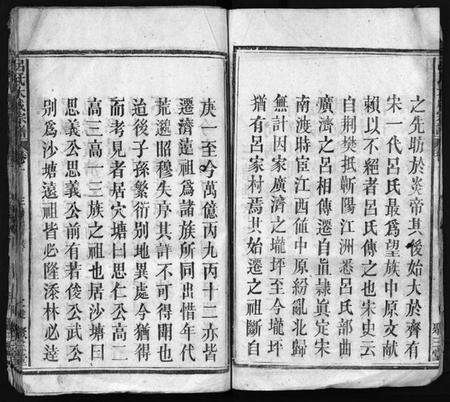 之先助於炎帝其後始大於齊有
宋一代呂氏最爲望族中原文献
賴以不絕者呂氏傳之也宋史云
自荆樊抵蘄陽江洲悉呂氏部曲
廣濟之呂相傳遷自直隷真定宋
南渡時宦江西値中原紛亂北歸
無計因家廣濟之壠坪至今壠坪
猶有呂家村焉其始遷之祖斷自
庚一至今萬億丙九丙十二亦皆
遷濟遠祖爲諸族所同出惜年代
荒邈昭穆失序其詳不可得聞也
迨後子孫繁衍別地異處今猶得
而考見者居穴塘曰思仁公高二
高三高一三族之祖也居沙塘曰
思義公思義公前有若俊公武公
別爲沙塘遠祖皆必隆添林必達